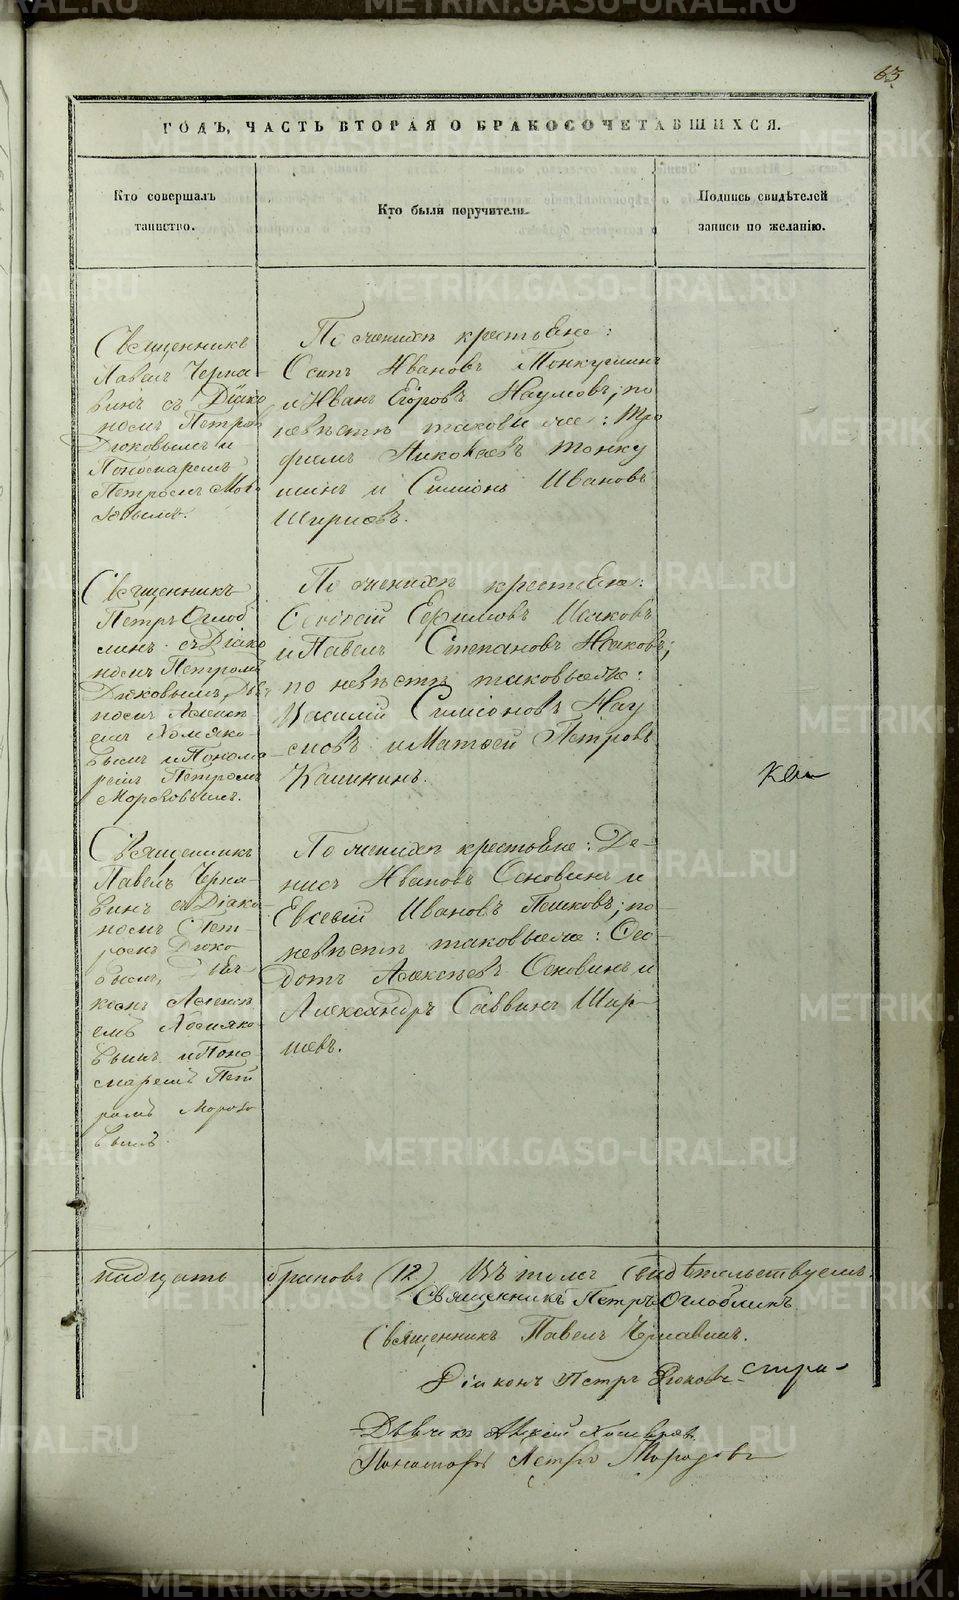 63
ГОДЪ, ЧАСТЬ ВТОРАЯ О БРАКОСОЧЕТАВШИХСЯ.
Кто совершалъ
таинство.
Кто были поручители.
Подпись свидѣтелей
записи по желанію.
Священникъ
Павелъ Черна-
винъ съ Діако
номъ Петромъ
Дюковымъ и
Пономаремъ
Петромъ Моро
зовымъ.
По женихѣ крестьяне:
Осипъ Ивановъ
и Иванъ Егоровъ Наумовъ; по
невѣстѣ таковые же: Тро
фимъ
и Симіонъ Ивановъ
Ширшовъ.
Священникъ
Петръ Оглоб
линъ съ Діако
номъ Петромъ
Дюковымъ,
Алексѣ
емъ Хомяко
вымъ и Понома
ремъ Петромъ
Морозовымъ.
По женихѣ крестьяне:
Ефимовъ
и Павелъ Степановъ
по невѣстѣ таковые же:
Василій Симіоновъ Нау
мовъ и Матвей Петровъ
Калининъ.
Священникъ
Павелъ Черна-
винъ съ Діако-
номъ Пет-
ромъ Дюко
вымъ,
Алексѣ
емъ Хомяко
вымъ и Поно
маремъ Пет
ромъ Морозо
вымъ
По женихѣ крестьяне: Де-
нисъ Ивановъ Основинъ и
Евсевій Ивановъ Пешковъ; по
невѣстѣ таковые же: Ѳео-
дотъ Алексѣевъ Основинъ и
Александръ Саввинъ Шир-
шевъ.
надцать браковъ (12) Въ томъ свидѣтельствуемъ:
Священникъ Петръ Оглоблинъ
Священникъ Павелъ Чернавинъ.
Діаконъ Петръ Дюковъ
Дьячекъ
Пономарь Петръ Морозовъ
METRIKI.GASO-URAL.RU